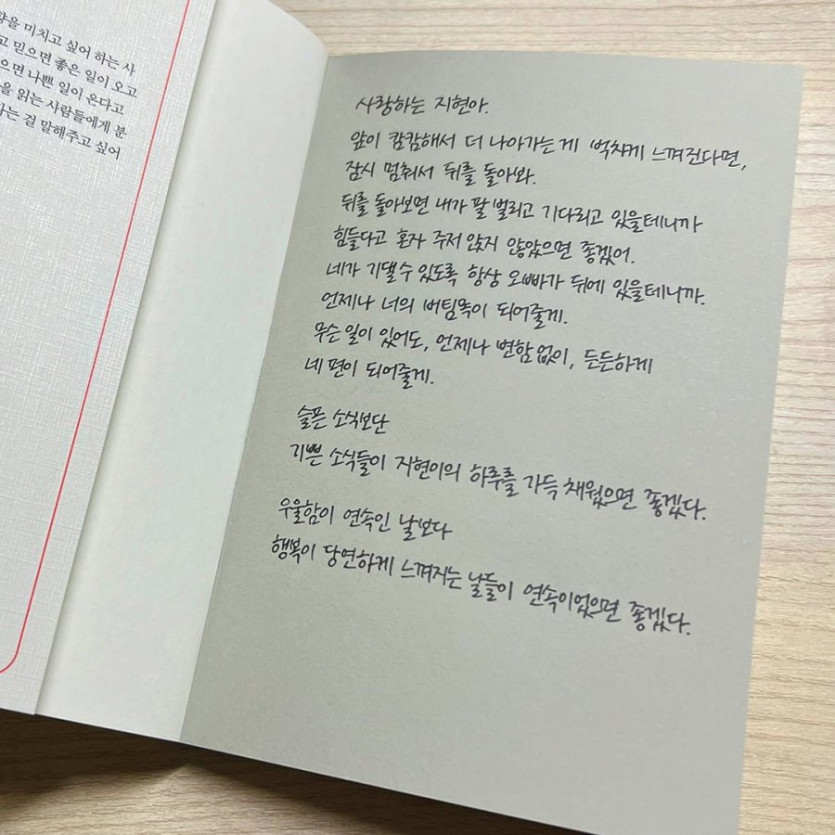 향을 미치고 싶어 하는 사
고 믿으면 좋은 일이 오고
으면 나쁜 일이 온다고
을 읽는 사람들에게 분
다는 걸 말해주고 싶어
사랑하는 지현아.
앞이 캄캄해서 더 나아가는 게 벅차게 느껴진다면,
잠시 멈춰서 뒤를 돌아봐.
뒤를 돌아보면 내가 팔 벌리고 기다리고 있을테니까
힘들다고 혼자 주저 앉지 않았으면 좋겠어.
네가 기댈수 있도록 항상 오빠가 뒤에 있을테니까.
언제나 너의 버팀목이 되어줄게.
무슨 일이 있어도, 언제나 변함없이, 든든하게
네 편이 되어줄게.
슬픈 소식보단
기쁜 소식들이 지현이의 하루를 가득 채웠으면 좋겠다.
우울함이 연속인 날보다
행복이 당연하게 느껴지는 날들이 연속이었으면 좋겠다.